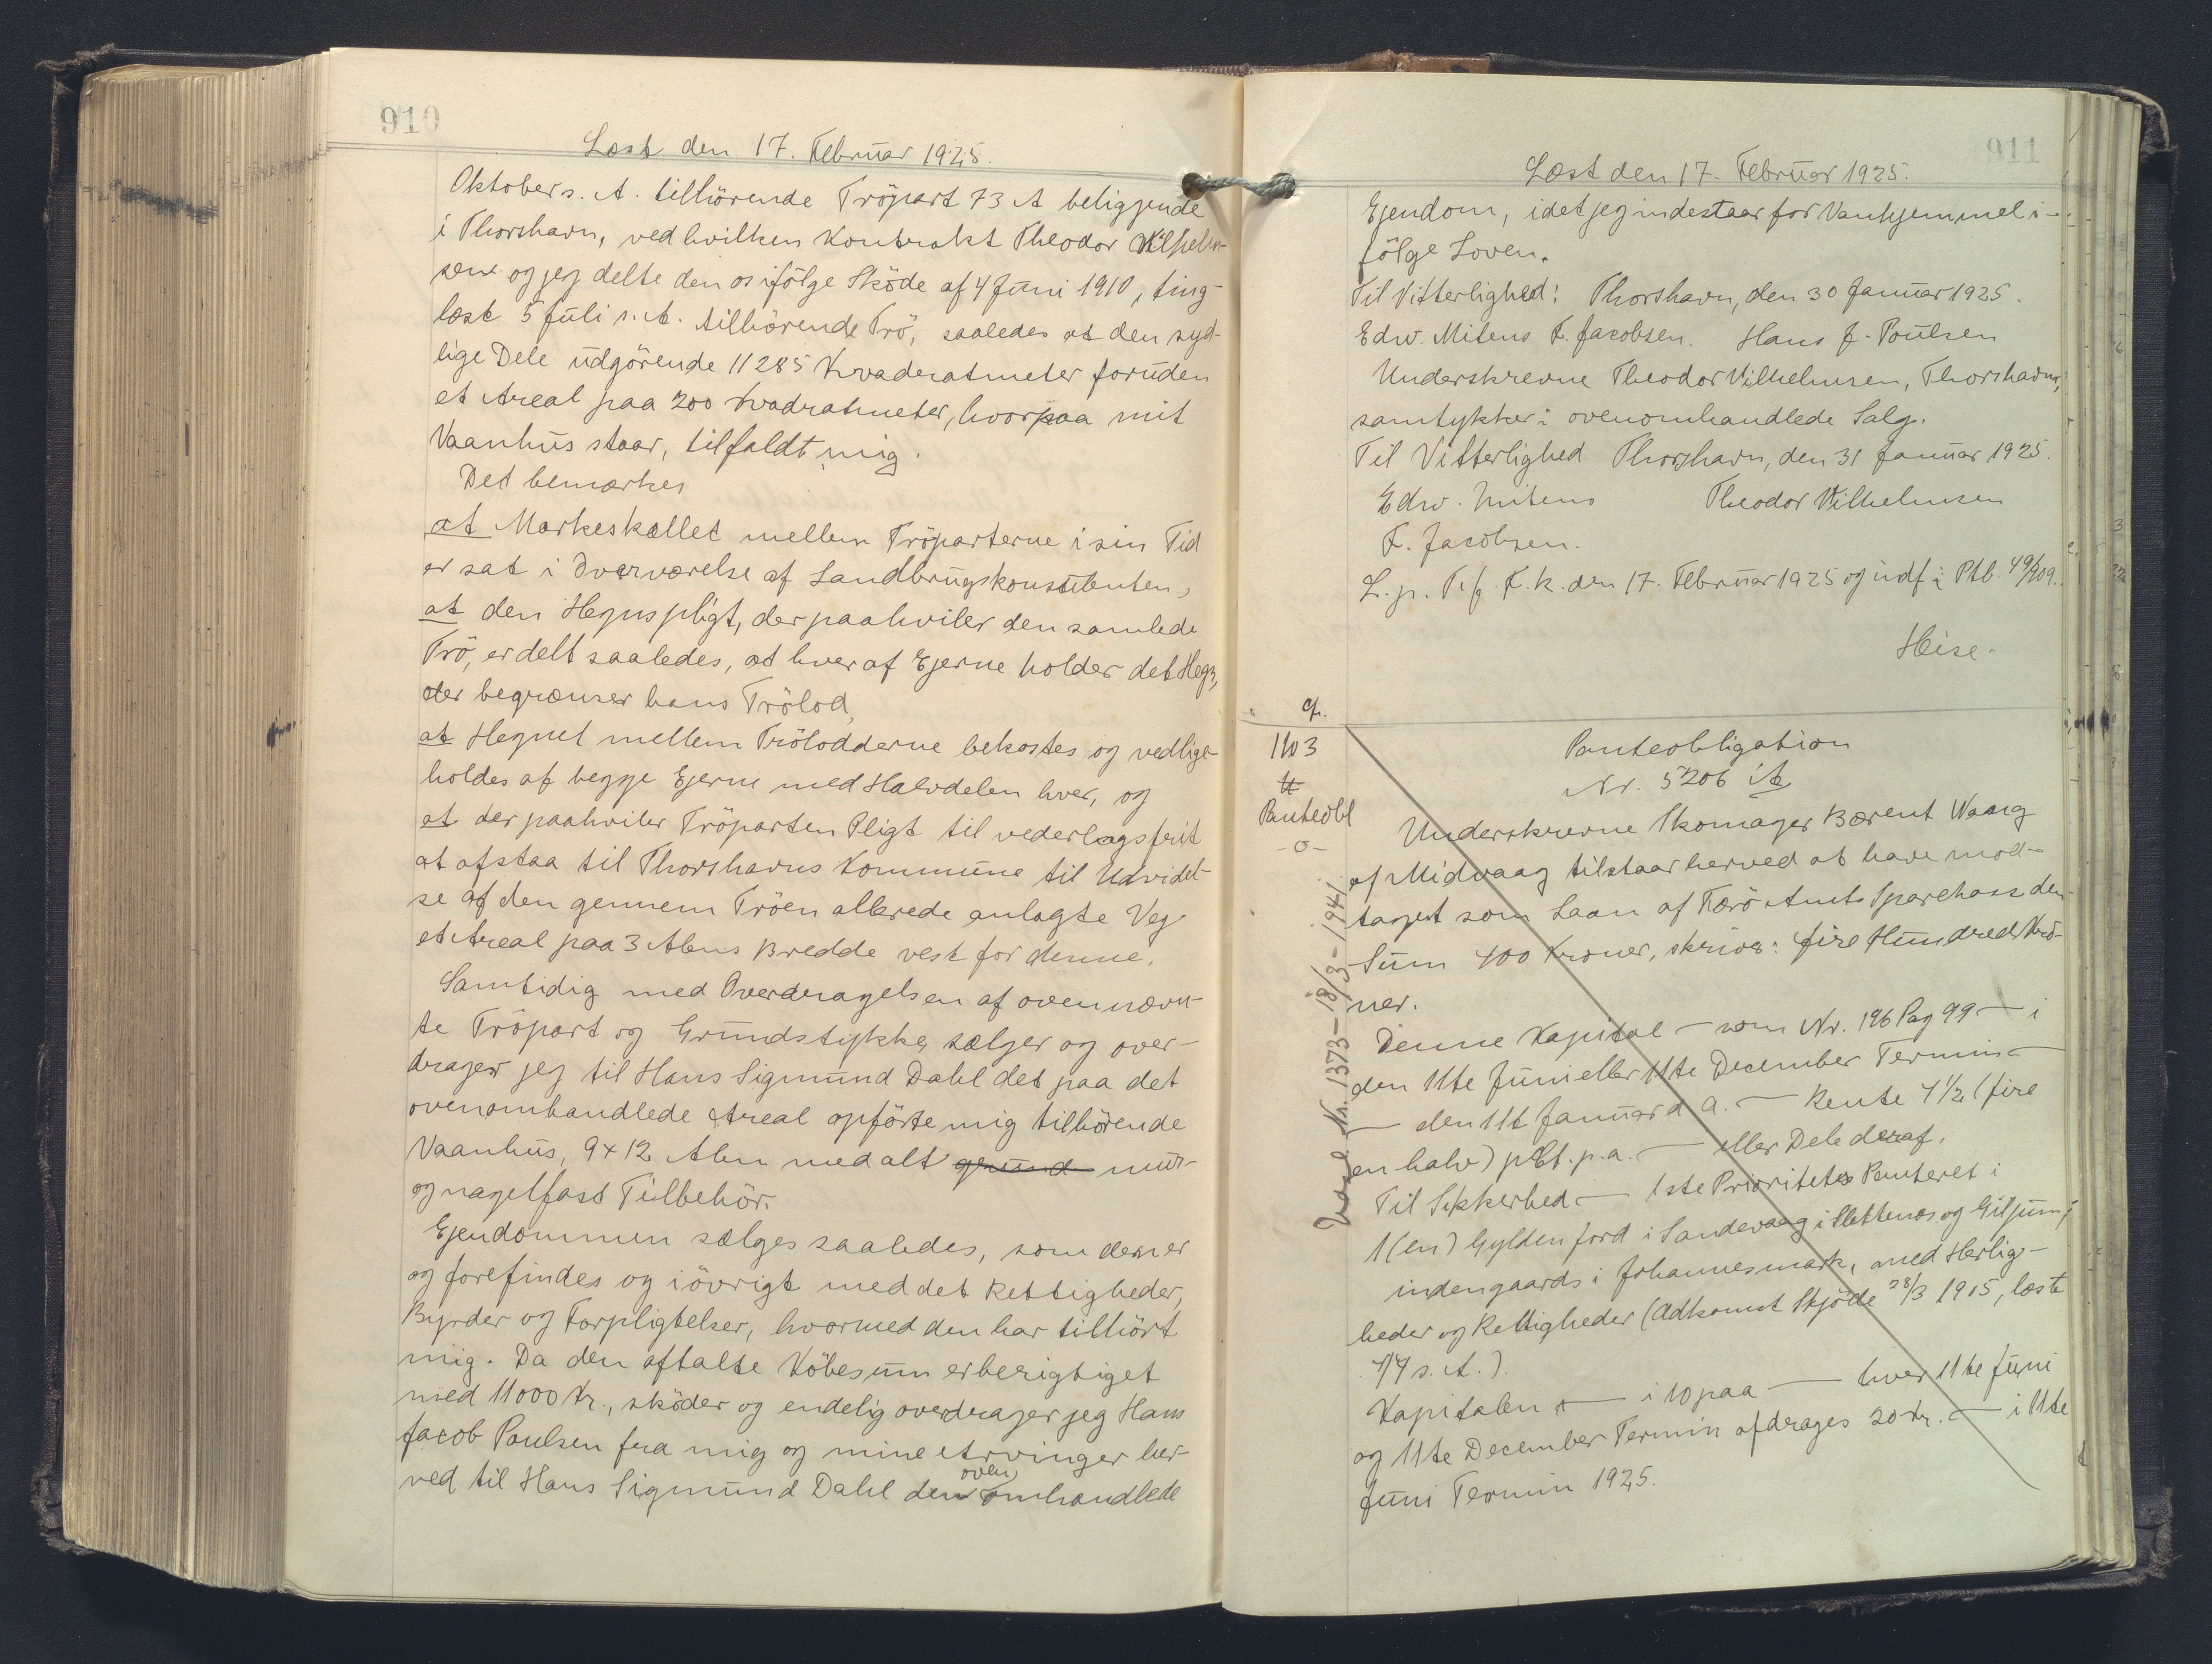 910
Læst den 17. Februar 1925.
Oktober s. A. tilhörende Tröpart 73 A beliggende
i Thorshavn, ved hvilken Kontrakt Theodor Vilhelm-
sen og jeg delte den os ifölge Sköde af 4 Juni 1910, ting-
læst 5 Juli s. A. tilhörende Trö, saaledes at den syd-
lige Dele udgörende 11285 Kvaderatmeter foruden
et Areal paa 200 Kvadratmeter, hvorpaa mit
Vaanhus staar, tilfaldt mig.
Det bemærkes
at Markeskællet mellem Tröparterne i sin Tid
er sat i Overværelse af Landbrugskonsulenten,
at den Hegnspligt, der paahviler den samlede
Trö, er delt saaledes, at hver af Ejerne holder det Hegn,
der begrænser hans Trölod,
at Hegnet mellem Trölodderne bekostes og vedlige-
holdes af begge Ejerne med Halvdelen hver, og
at der paahviler Tröparten Pligt til vederlagsfrit
at afstaa til Thorshavns Kommune til Udvidel-
se af den gennem Tröen allerede anlagte Vej
et Areal paa 3 Alens Bredde vest for denne.
Samtidig med Overdragelsen af ovennævn-
te Tröpart og Grundstykke sælger og over-
drager jeg til Hans Sigmund Dahl det paa det
ovenomhandlede Areal opförte mig tilhörende
Vaanhus, 9 x 12 Alen med alt grund mur-
og nagelfast Tilbehör.
Ejendommen sælges saaledes, som den er
og forefindes og iövrigt med det Rettigheder,
Byrder og Forpligtelser, hvormed den har tilhört
mig. Da den aftalte Köbesum er berigtiget
med 11000 Kr., sköder og endelig overdrager jeg Hans
Jacob Poulsen fra mig og mine Arvinger her-
ved til Hans Sigmund Dahl den oven omhandlede
911
Læst den 17. Februar 1925.
Ejendom, idet jeg indestaar for Vanhjemmel i-
fölge Loven.
Til Vitterlighed: Thorshavn, den 30 Januar 1925.
Edw. Mitens F. Jacobsen. Hans J. Poulsen
Underskrevne Theodor Vilhelmsen, Thorshavn,
samtykker i ovenomhandlede Salg.
Til Vitterlighed Thorshavn, den 31 Januar 1925.
Edw. Mitens Theodor Vilhelmsen
F. Jacobsen.
L. p. T. f. F. k. den 17. Februar 1925 og indf i Ptb. 49/409.
Heise.
1103
Panteobl
-o-
Vase Nr. 1373 - 18/3 - 1941
Panteobligation
Nr. 5206 A
Underskrevne Skomager Bærent Waag
af Midvaag tilstaar herved at have mod-
taget som Laan af Færö Amts Sparekasse den
Sum 400 Kroner, skriver: fire Hundred Kro-
ner.
Denne Kapital — som Nr. 196 Pag 99 — i
den 11te Juni eller 11te December Termin —
— den 11te Januar d A. — Rente 4 1/2 (fire
en halv) pCt. p.a. — eller Dele deraf.
Til Sikkerhed — 1ste Prioritets Panteret i
1 (en) Gylden Jord i Sandevaag i Slettenæs og Giljum,
indengaards i Johannesmark, med Herlig-
heder og Rettigheder (Adkomst Skjöde 28/3 1905, læst
4/4 s. A.).
Kapitalen — i 10 paa — hver 11te Juni
og 11te December Termin afdrages 20 Kr. — i 11te
Juni Termin 1925.